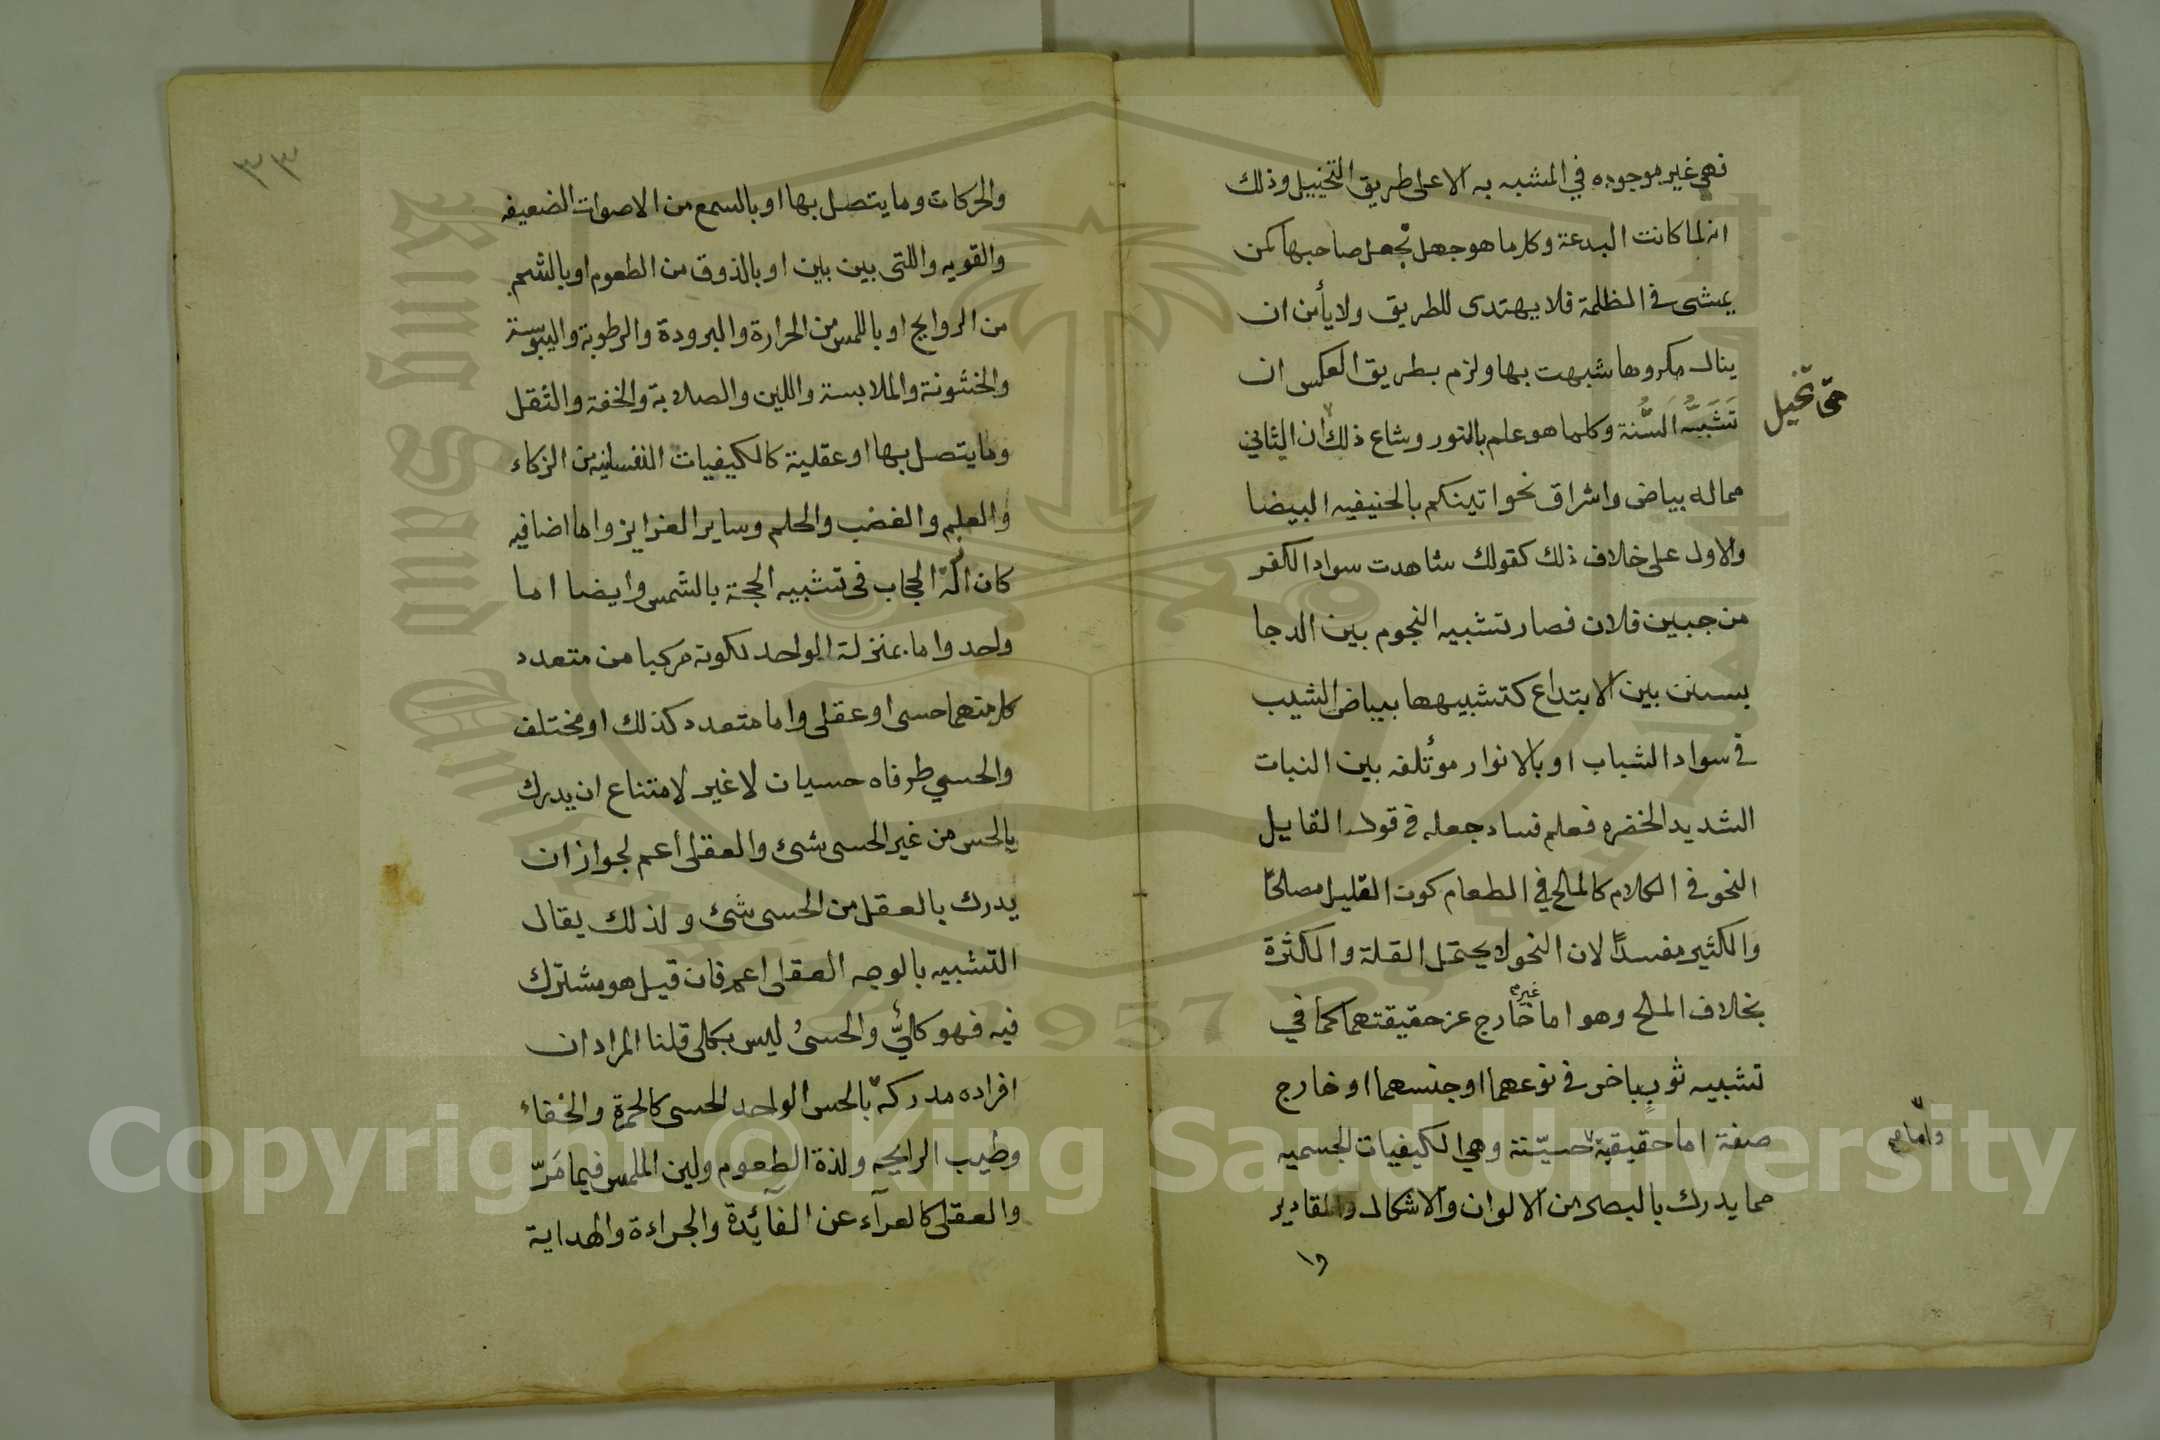 فهي غير موجوده في المشبه به الا على طريق التخييل وذلك
انه لما كانت البدعة وكل ما هو جهل تجعل صاحبها كمن
يمشي في الظلمة فلا يهتدى للطريق ولا يأمن ان
ينال مكروها شبهت بها ولزم بطريق العكس ان
تشبه السنة وكلما هو علم بالنور وشاع ذلك ان الثاني
مماله بياض واشراق نحو اتيتكم بالحنيفيه البيضا
والاول على خلاف ذلك كقولك شاهدت سواد الكفر
من جبين فلان فصار تشبيه النجوم بين الدجا
بسنن بين الابتداع كتشبيهها ببياض الشيب
في سواد الشباب او بالانوار موتلفه بين النبات
الشديد الخضره فعلم فساد جعله في قول القايل
النحو في الكلام كالملح في الطعام كون القليل مصلحًا
والكثير مفسدًا لان النحو لا يحتمل القلة والكثرة
بخلاف الملح وهو اما غير خارج عن حقيقتهما كما في
تشبيه ثوب باخر في نوعهما او جنسهما او خارج
صفة اما حقيقية حسيّة وهي الكيفيات الجسميه
مما يدرك بالبصر من الالوان والاشكال والمقادير
تخيل
واما
٣٣
والحركات وما يتصل بها او بالسمع من الاصوات الضعيفه
والقويه واللتى بين بين او بالذوق من الطعوم او بالشم
من الروايح او باللمس من الحرارة والبرودة والرطوبة واليبوسة
والخشونة والملابسة واللين والصلابة والخفة والثقل
وما يتصل بها او عقلية كالكيفيات النفسانيه من الزكاء
والعلم والغضب والحلم وساير الغرايز واما اضافيه
كان الة الحجاب في تشبيه الحجة بالشمس وايضا اما
واحد واما بمنزلة الواحد لكونه مركبا من متعدد
كل منهما حسى او عقلى واما متعدد كذلك او مختلف
والحسي طرفاه حسيان لا غير لامتناع ان يدرك
بالحس من غير الحسى شئ والعقلى أعم لجواز ان
يدرك بالعقل من الحسى شئ ولذلك يقال
التشبيه بالوجه العقلى اعم فان قيل هو مشترك
فيه فهو كليّ والحسىُ ليس بكلى قلنا المراد ان
افراده مدركة بالحس الواحد الحسى كالحمرة والخفاء
وطيب الرايحه ولذة الطعوم ولين الملمس فيما مَرّ
والعقلى كالعرآء عن الفآئدة والجراءة والهداية